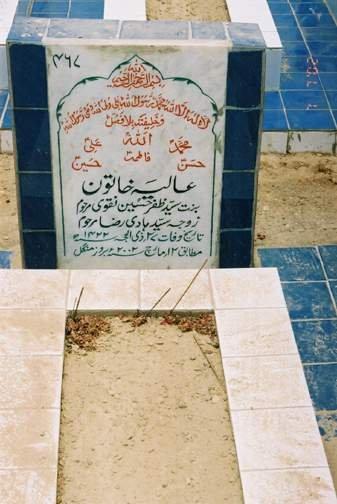 ۴۶۷
بسم اللہ الرحمن الرحیم
لا الہ الا اللہ محمد رسول اللہ علی ولی اللہ وصی رسول اللہ
وخلیفتہ بلا فصل
محمدؐ اللہ علیؑ
حسنؑ فاطمہؑ حسینؑ
عالیہ خاتون
بنت سید ظفر حسین نقوی مرحوم
زوجہ سید ہادی رضا مرحوم
تاریخ وفات ۲۷ ذی الحجہ ۱۴۲۲ھ
مطابق ۱۲ مارچ ۲۰۰۲ء بروز منگل